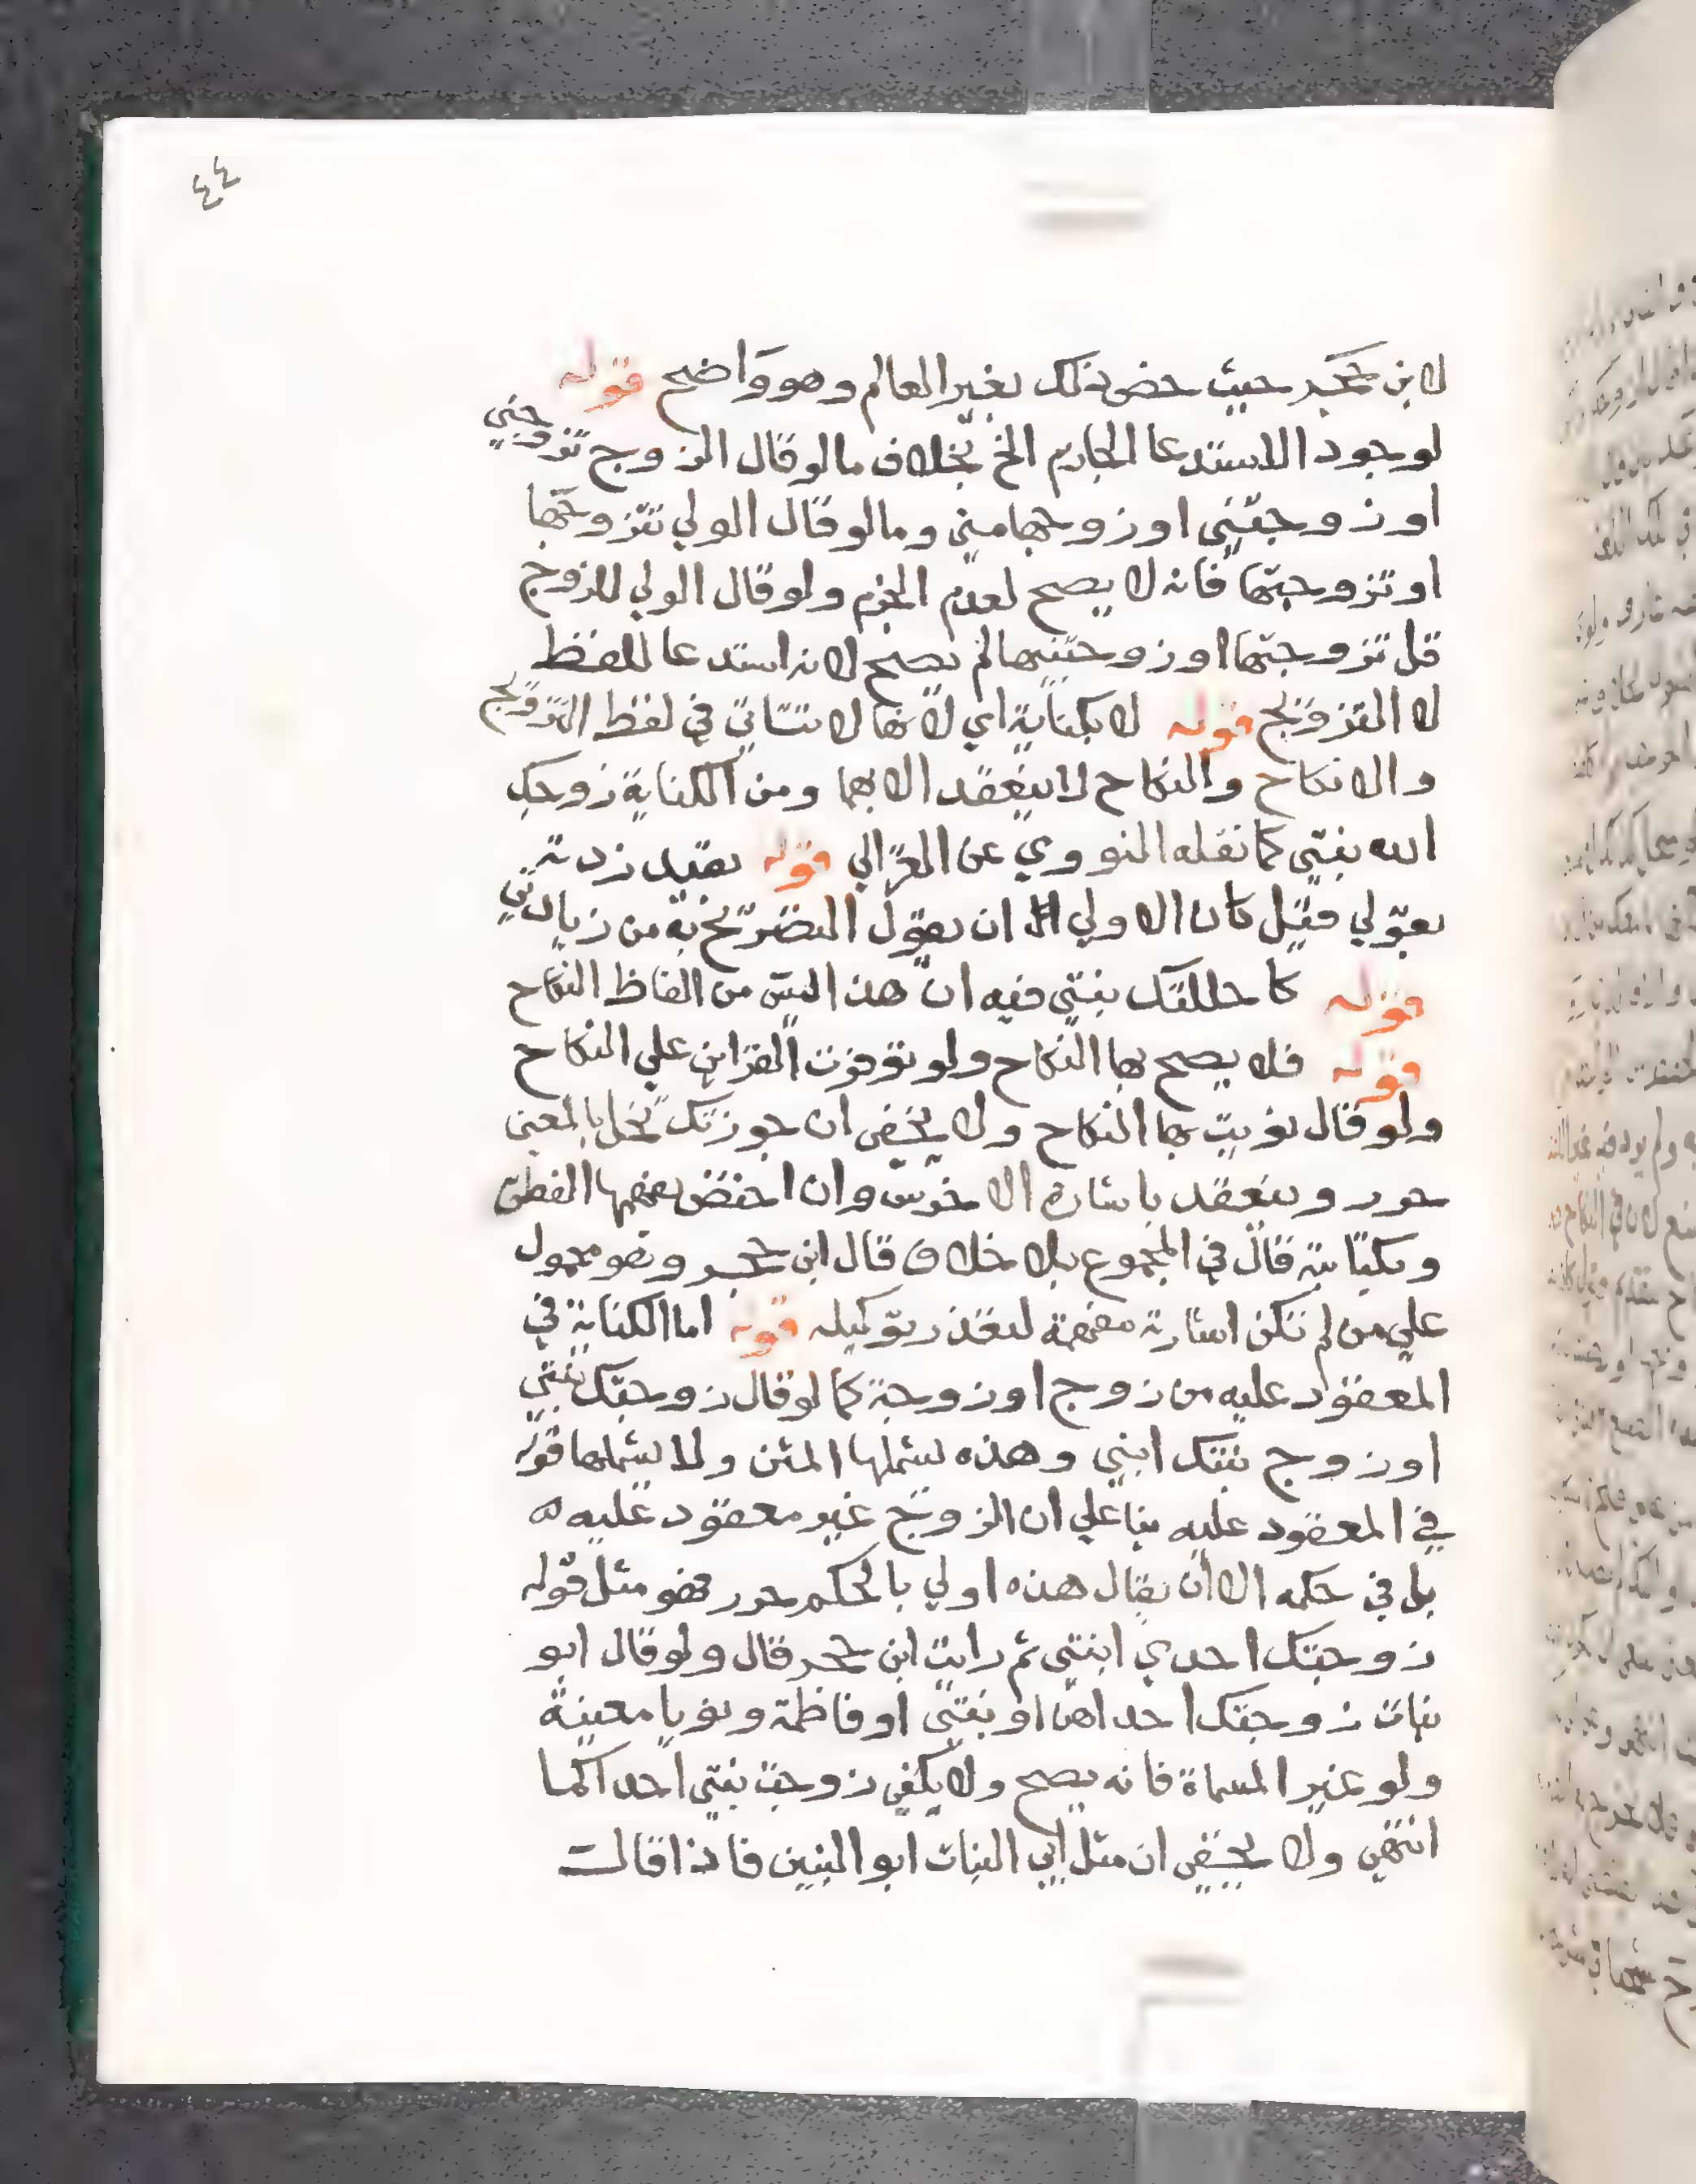 ٤٤
لابن حجر حيث خص ذلك بغير العالم وهو واضح قوله
لوجود الاستدعا الجازم الخ بخلاف مالو قال الزوج تزوجني
او زوجتني او زوجها مني ومالو قال الولي تتزوجها
او تزوجتها فانه لا يصح لعدم الجزم ولو قال الولي للزوج
قل تزوجتها او زوجتنيها لم يصح لانه استدعا للفظ
لا التزويج قوله لا بكناية اي لانها لا تتاتي في لفظ التزويج
والانكاح والنكاح لا ينعقد الا بهما ومن الكناية زوجك
الله بنتي كما نقله النووي عن الغزالي قوله بقيد زدته
بقولي قيل كان الاولي ان يقول التصريح به من زيادتي
قوله كاحللتك بنتي فيه ان هذا ليس من الفاظ النكاح
قوله فلا يصح بها النكاح ولو توفرت القراين علي النكاح
ولو قال نويت بها النكاح ولا يخفى ان جوزتك يخل بالمعنى
حرر وينعقد باشارة الاخرس وان اختص بفهمها الفطن
وبكتابته قال في المجموع بلا خلاف قال ابن حجر وهو محمول
علي من لم تكن اشارته مفهمة لتعذر توكيله قوله اما الكناية في
المعقود عليه من زوج او زوجة كما لو قال زوجتك بنتي
او زوج بنتك ابني وهذه يشملها المتن ولا يشملها قوله
في المعقود عليه بنا علي ان الزوج غير معقود عليه
بل في حكمه الا ان يقال هذه اولي بالحكم حرر فهو مثل قوله
زوجتك احدي ابنتي ثم رايت ابن حجر قال ولو قال ابو
بنات زوجتك احداهن او بنتي او فاطمة ونويا معينة
ولو غير المسماة فانه يصح ولا يكفي زوجت بنتي احدا كما
انتهى ولا يخفى ان مثل ابي البنات ابو البنين فاذا قالت